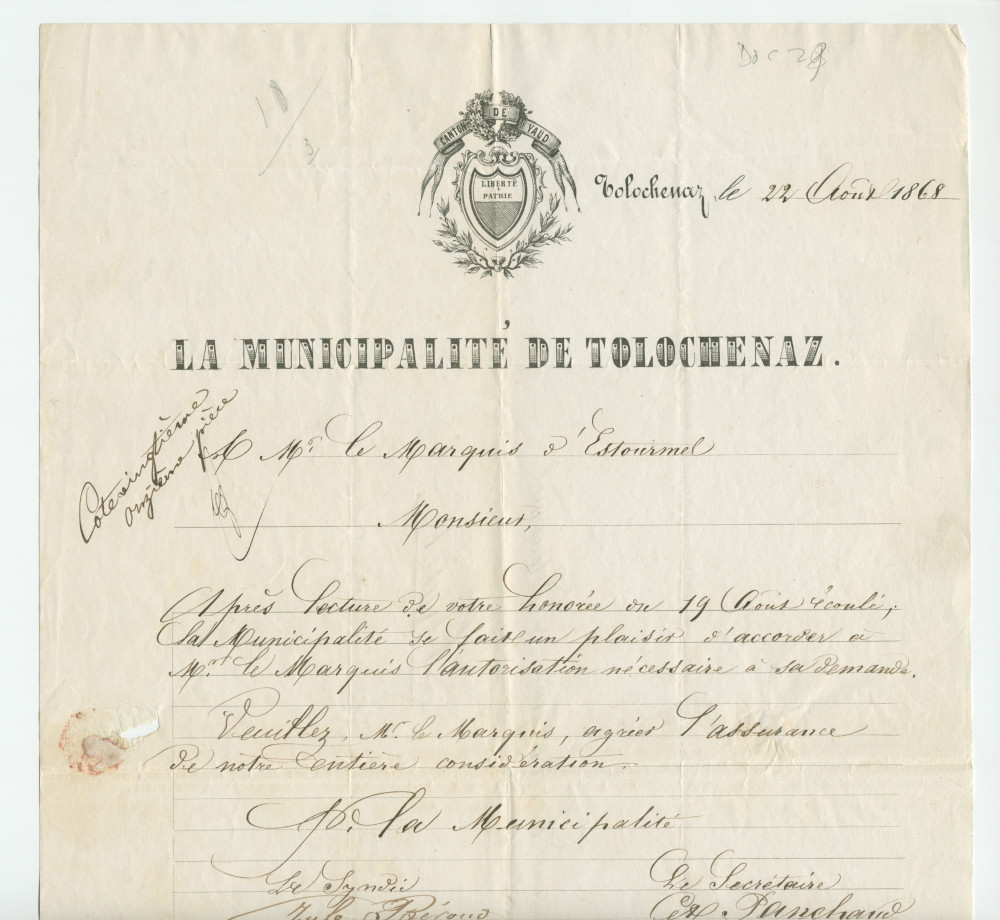 Doc 28
10
3
CANTON DE VAUD
LIBERTÉ
PATRIE
Tolochenaz, le 22 Août 1868
LA MUNICIPALITÉ DE TOLOCHENAZ.
Cote vingtième
onzième pièce
A Mr. le Marquis d'Estourmel
Monsieur,
Après lecture de votre honorée du 19 Août écoulé,
la Municipalité se fait un plaisir d'accorder à
Mr. le Marquis l'autorisation nécessaire à sa demande.
Veuillez, Mr. le Marquis, agréer l'assurance
de notre entière considération.
P. la Municipalité
Le Syndic
Le Secrétaire